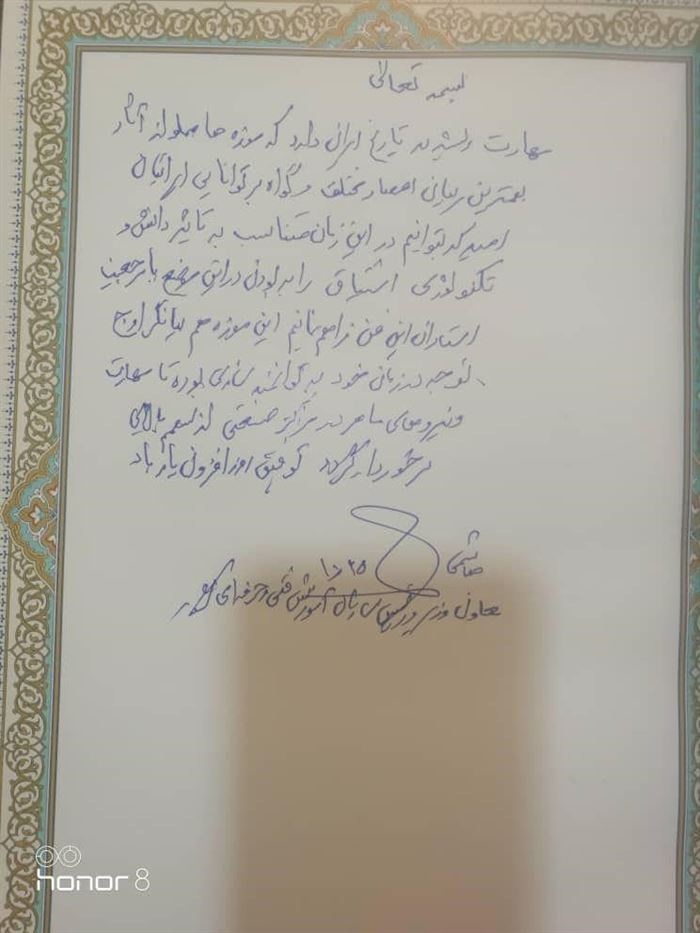 بسمه تعالی
مهارت ریشه در تاریخ ایران دارد که موزه ها مملو از آثار
بهترین مربیان اعصار مختلف و گواه بر توانایی ایرانیان
امید که بتوانیم در این زمان متناسب به تاثیر دانش و
تکنولوژی اشتیاق را به بودن در این موضع با مرجعیت
استادان این فن فراهم نمائیم این موزه هم بیانگر اوج
توجه در زمان خود به توانمند سازی بوده تا مهارت
و نیروهای ماهر در مراکز صنعتی از سهم بالایی
برخوردار گردد توفیق روزافزون یار باد
هاشمی
معاون وزیر و رئیس سازمان آموزش فنی و حرفه ای کشور
honor 8